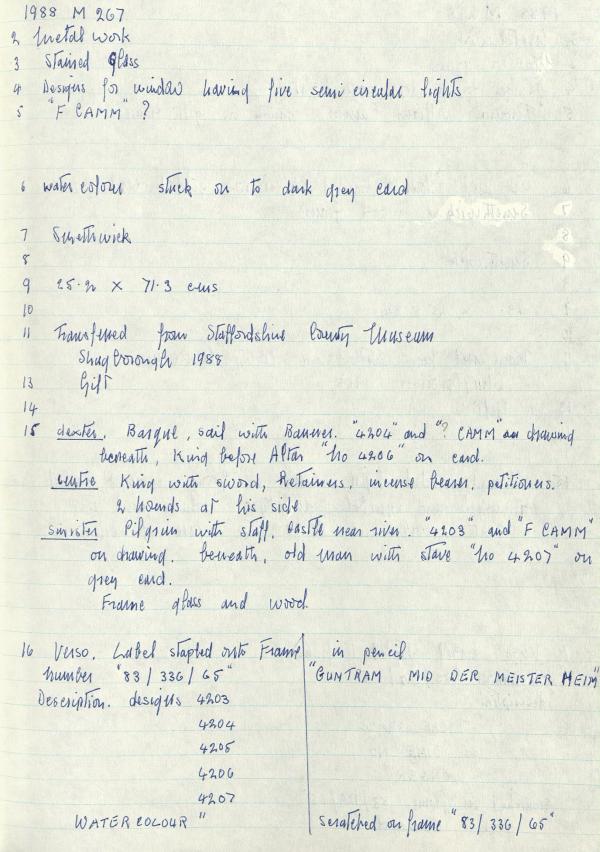 1988 M 267
2 Metal work
3 Stained glass
4 Designs for window having five semi circular lights
5 "F CAMM" ?
6 water colour stuck on to dark grey card
7 Smethwick
8
9 25.2 × 71.3 cms
10
11 Transferred from Staffordshire County Museum
Shugborough 1988
13 Gift
14
15 dexter. Barque, sail with Banner. "4204" and "? CAMM" on drawing
beneath, King before Altar "No 4206" on card.
centre King with sword, Retainers, incense bearer, petitioners.
2 hounds at his side
sinister Pilgrim with staff, castle near river. "4203" and "F CAMM"
on drawing. beneath, old man with stave "No 4207" on
grey card.
Frame glass and wood
16 Verso. Label stapled onto Frame
Number "83/336/65"
Description. designs 4203
4204
4205
4206
4207
WATERCOLOUR "
in pencil
"GUNTRAM MID DER MEISTER HEIM"
scratched on frame "83/336/65"